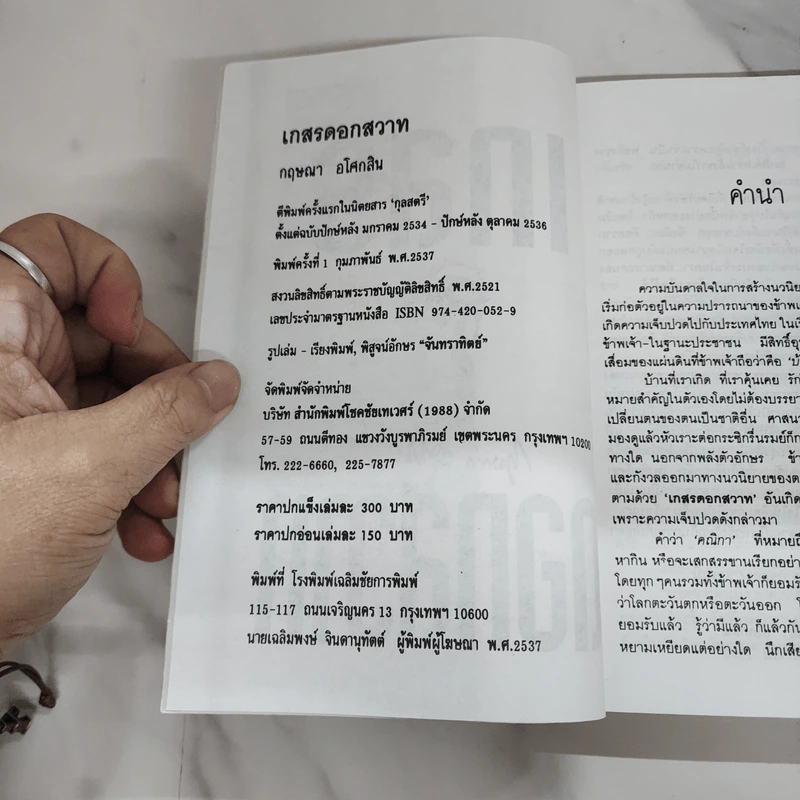 เกสรดอกสวาท
กฤษณา อโศกสิน
ตีพิมพ์ครั้งแรกในนิตยสาร ‘กุลสตรี’
ตั้งแต่ฉบับปักษ์หลัง มกราคม 2534 - ปักษ์หลัง ตุลาคม 2536
พิมพ์ครั้งที่ 1 กุมภาพันธ์ พ.ศ.2537
สงวนลิขสิทธิ์ตามพระราชบัญญัติลิขสิทธิ์ พ.ศ.2521
เลขประจำมาตรฐานหนังสือ ISBN 974-420-052-9
รูปเล่ม - เรียงพิมพ์, พิสูจน์อักษร “จันทราทิตย์”
จัดพิมพ์จัดจำหน่าย
บริษัท สำนักพิมพ์โชคชัยเทเวศร์ (1988) จำกัด
57-59 ถนนตีทอง แขวงวังบูรพาภิรมย์ เขตพระนคร กรุงเทพฯ 10200
โทร. 222-6660, 225-7877
ราคาปกแข็งเล่มละ 300 บาท
ราคาปกอ่อนเล่มละ 150 บาท
พิมพ์ที่ โรงพิมพ์เฉลิมชัยการพิมพ์
115-117 ถนนเจริญนคร 13 กรุงเทพฯ 10600
นายเฉลิมพงษ์ จินดานุทัตต์ ผู้พิมพ์ผู้โฆษณา พ.ศ.2537
คำนำ
ความบันดาลใจในการสร้างนวนิย
เริ่มก่อตัวอยู่ในความปรารถนาของข้าพเ
เกิดความเจ็บปวดไปกับประเทศไทย ในเรื
ข้าพเจ้า-ในฐานะประชาชน มีสิทธิ์อุ
เสื่อมของแผ่นดินที่ข้าพเจ้าถือว่าคือ ‘บ้
บ้านที่เราเกิด ที่เราคุ้นเคย รัก
หมายสำคัญในตัวเองโดยไม่ต้องบรรยา
เปลี่ยนตนของตนเป็นชาติอื่น ศาสน
มองดูแล้วหัวเราะต่อกระซิกรื่นรมย์ก็ก
ทางใด นอกจากพลังตัวอักษร ข้
และกังวลออกมาทางนวนิยายของต
ตามด้วย ‘เกสรดอกสวาท’ อันเกิด
เพราะความเจ็บปวดดังกล่าวมา
คำว่า ‘คณิกา’ ที่หมายถึ
หากิน หรือจะเสกสรรขานเรียกอย่า
โดยทุก ๆคนรวมทั้งข้าพเจ้าก็ยอมรั
ว่าโลกตะวันตกหรือตะวันออก โ
ยอมรับแล้ว รู้ว่ามีแล้ว ก็แล้วกัน
หยามเหยียดแต่อย่างใด นึกเสีย